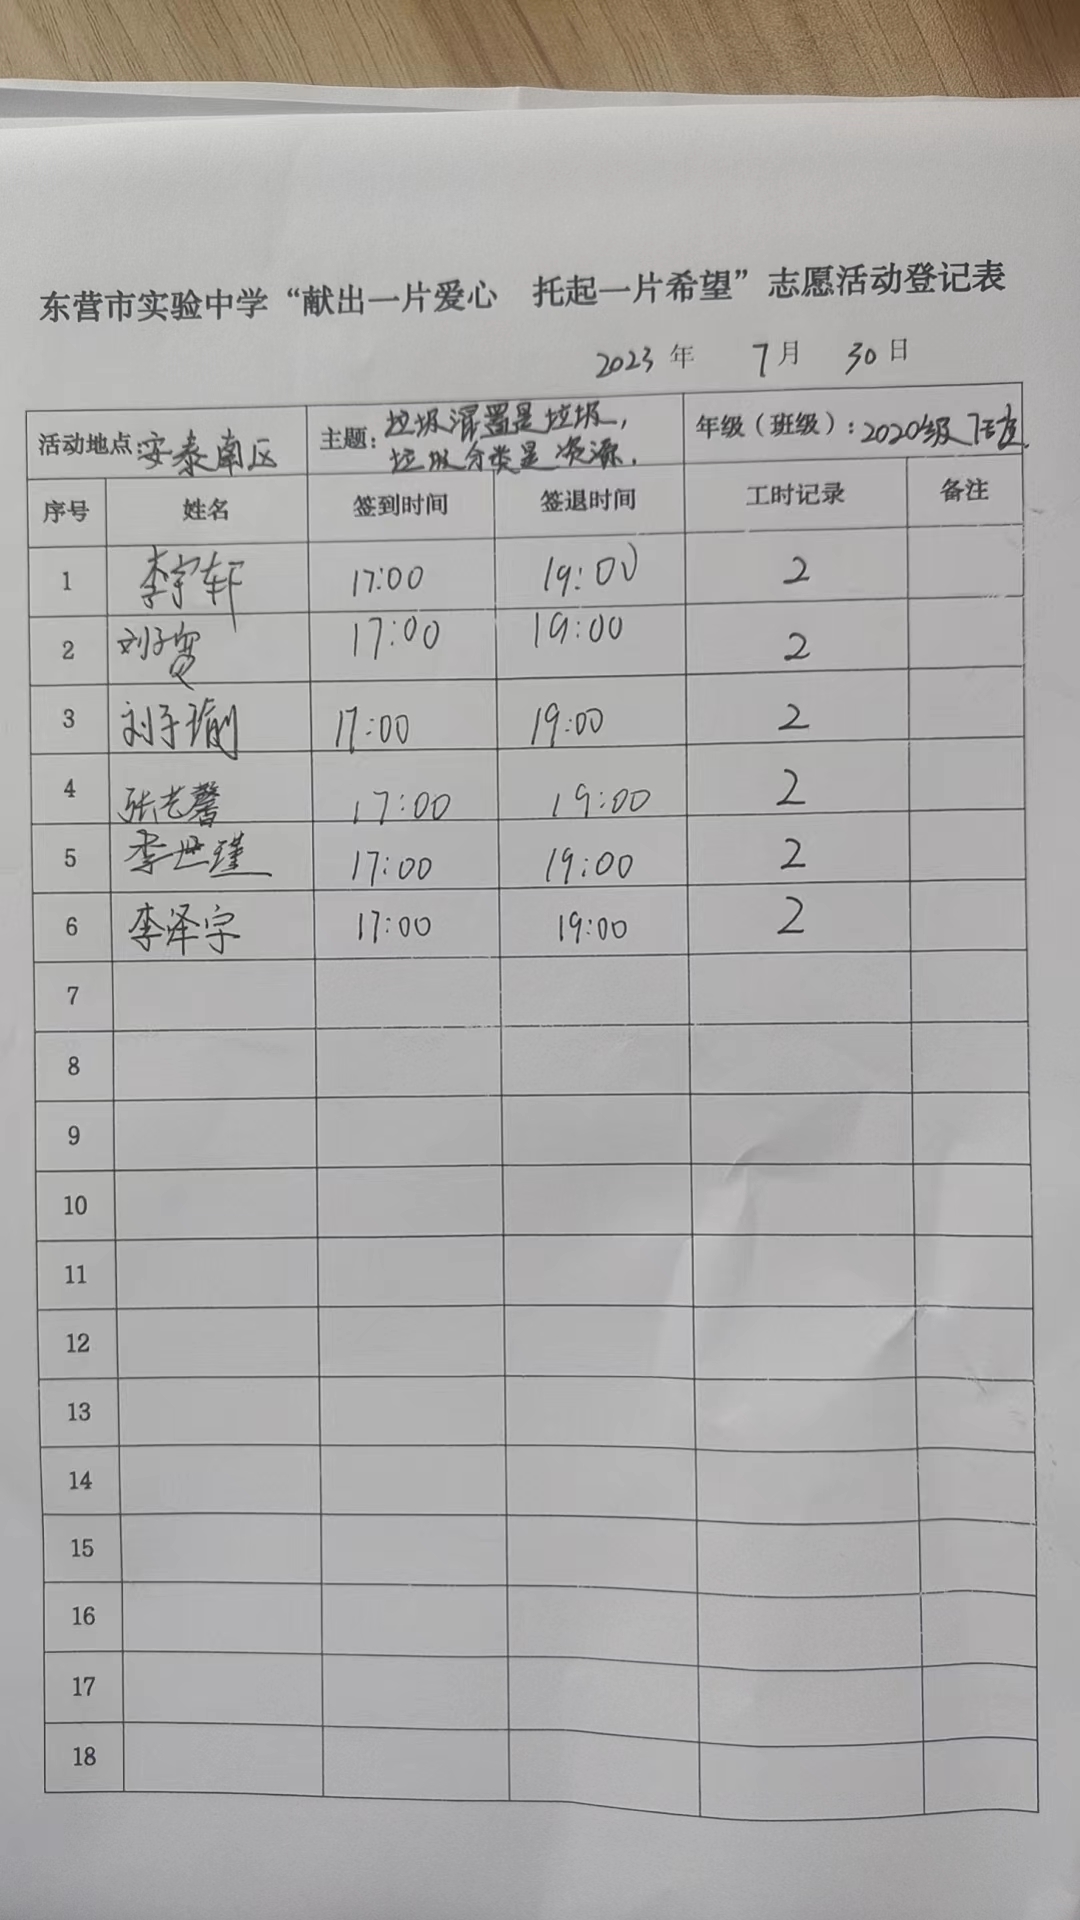 东营市实验中学“献出一片爱心 托起一片希望”志愿活动登记表
2023 年 7月 30日
活动地点:安泰南区 主题:垃圾混置是垃圾,
垃圾分类是资源. 年级（班级）:2020级
序号 姓名 签到时间 签退时间 工时记录 备注
1 李宇轩 17:00 19:00 2
2 刘子 17:00 19:00 2
3 刘子瑜 17:00 19:00 2
4 张艺馨 17:00 19:00 2
5 李世瑾 17:00 19:00 2
6 李泽宇 17:00 19:00 2
7
8
9
10
11
12
13
14
15
16
17
18